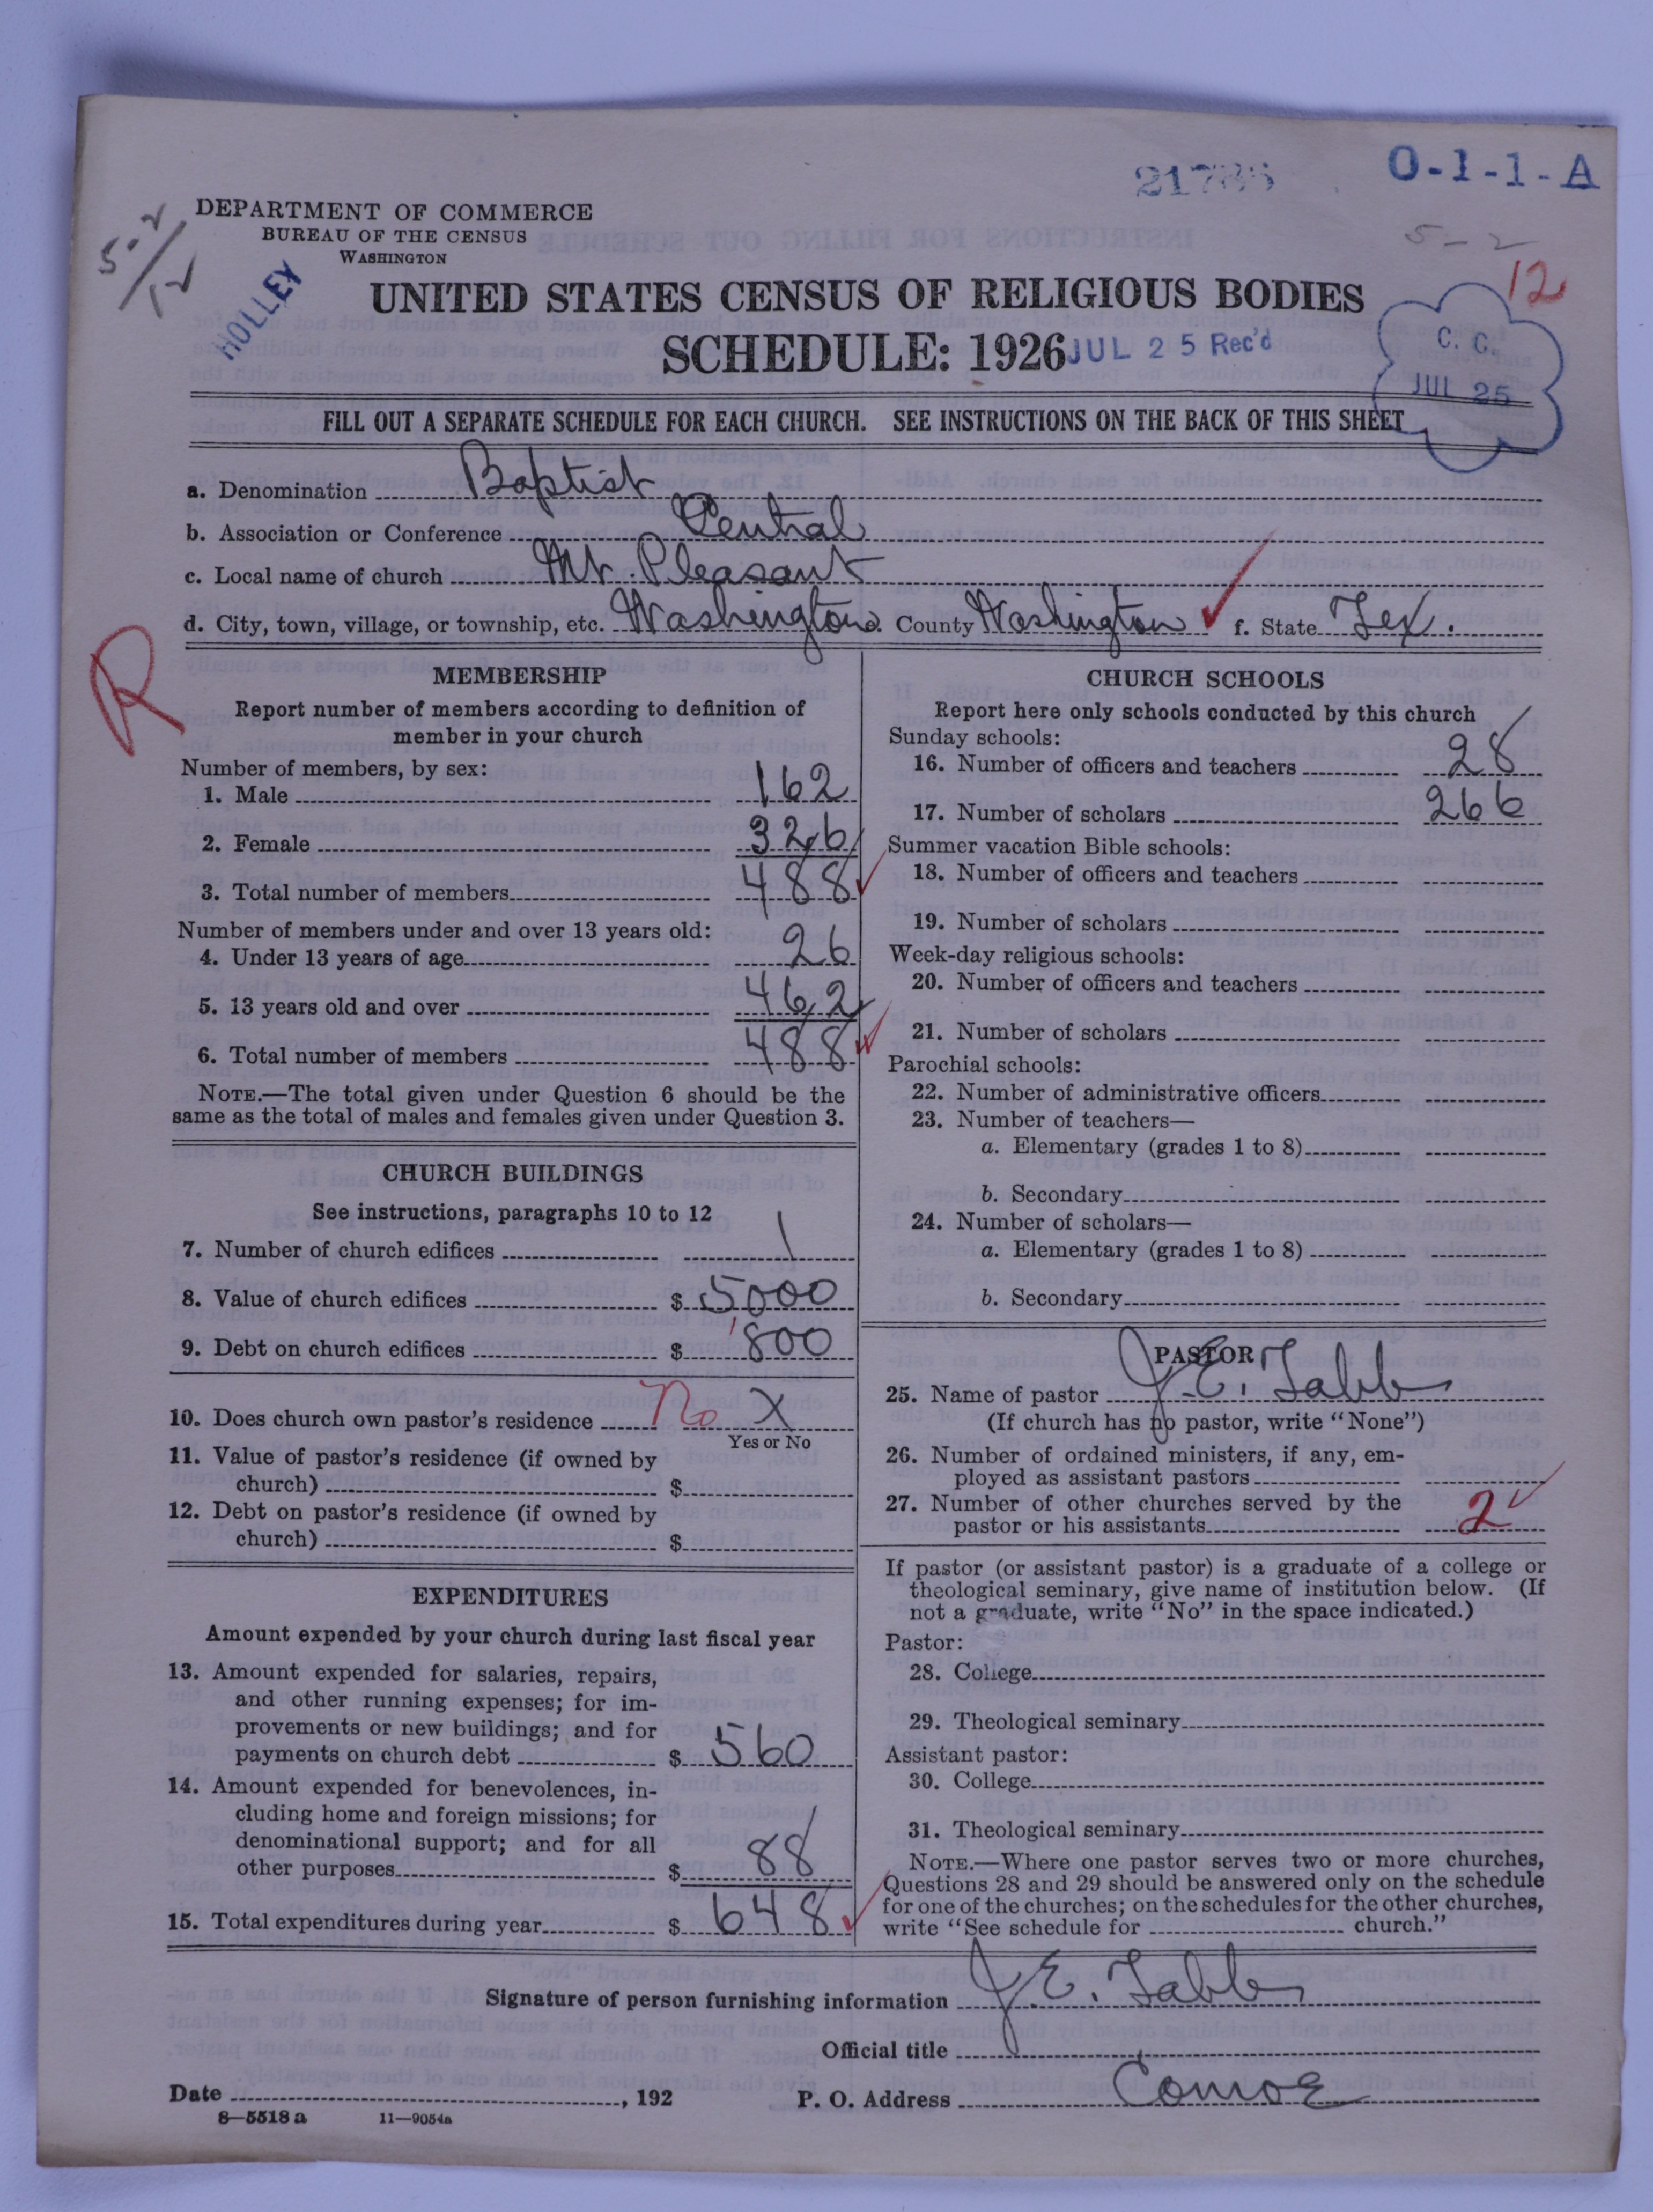 21786
O-1-1-A
DEPARTMENT OF COMMERCE
BUREAU OF THE CENSUS
WASHINGTON
5-2
12
5-2
12
HOLLEY
UNITED STATES CENSUS OF RELIGIOUS BODIES
SCHEDULE: 1926
JUL 25 Rec'd
C. C.
JUL 25
FILL OUT A SEPARATE SCHEDULE FOR EACH CHURCH. SEE INSTRUCTIONS ON THE BACK OF THIS SHEET
a. Denomination Baptist
b. Association or Conference Central
c. Local name of church Mt. Pleasant
d. City, town, village, or township, etc. Washington e. County Washington f. State Tex.
R
MEMBERSHIP
Report number of members according to definition of
member in your church
Number of members, by sex:
1. Male 162
2. Female 326
3. Total number of members 488
Number of members under and over 13 years old:
4. Under 13 years of age 26
5. 13 years old and over 462
6. Total number of members 488
NOTE.—The total given under Question 6 should be the
same as the total of males and females given under Question 3.
CHURCH BUILDINGS
See instructions, paragraphs 10 to 12
7. Number of church edifices 1
8. Value of church edifices $ 5000
9. Debt on church edifices $ 800
10. Does church own pastor's residence No X
Yes or No
11. Value of pastor's residence (if owned by
church) $
12. Debt on pastor's residence (if owned by
church) $
EXPENDITURES
Amount expended by your church during last fiscal year
13. Amount expended for salaries, repairs,
and other running expenses; for im-
provements or new buildings; and for
payments on church debt $ 560
14. Amount expended for benevolences, in-
cluding home and foreign missions; for
denominational support; and for all
other purposes $ 88
15. Total expenditures during year $ 648
CHURCH SCHOOLS
Report here only schools conducted by this church
Sunday schools:
16. Number of officers and teachers 28
17. Number of scholars 266
Summer vacation Bible schools:
18. Number of officers and teachers
19. Number of scholars
Week-day religious schools:
20. Number of officers and teachers
21. Number of scholars
Parochial schools:
22. Number of administrative officers
23. Number of teachers—
a. Elementary (grades 1 to 8)
b. Secondary
24. Number of scholars—
a. Elementary (grades 1 to 8)
b. Secondary
PASTOR
25. Name of pastor J. E. Tabb
(If church has no pastor, write "None")
26. Number of ordained ministers, if any, em-
ployed as assistant pastors
27. Number of other churches served by the
pastor or his assistants 2
If pastor (or assistant pastor) is a graduate of a college or
theological seminary, give name of institution below. (If
not a graduate, write "No" in the space indicated.)
Pastor:
28. College
29. Theological seminary
Assistant pastor:
30. College
31. Theological seminary
NOTE.—Where one pastor serves two or more churches,
Questions 28 and 29 should be answered only on the schedule
for one of the churches; on the schedules for the other churches,
write "See schedule for church."
Signature of person furnishing information J. E. Tabb
Official title
Date , 192
P. O. Address Conroe
8—5518 a 11—9054a